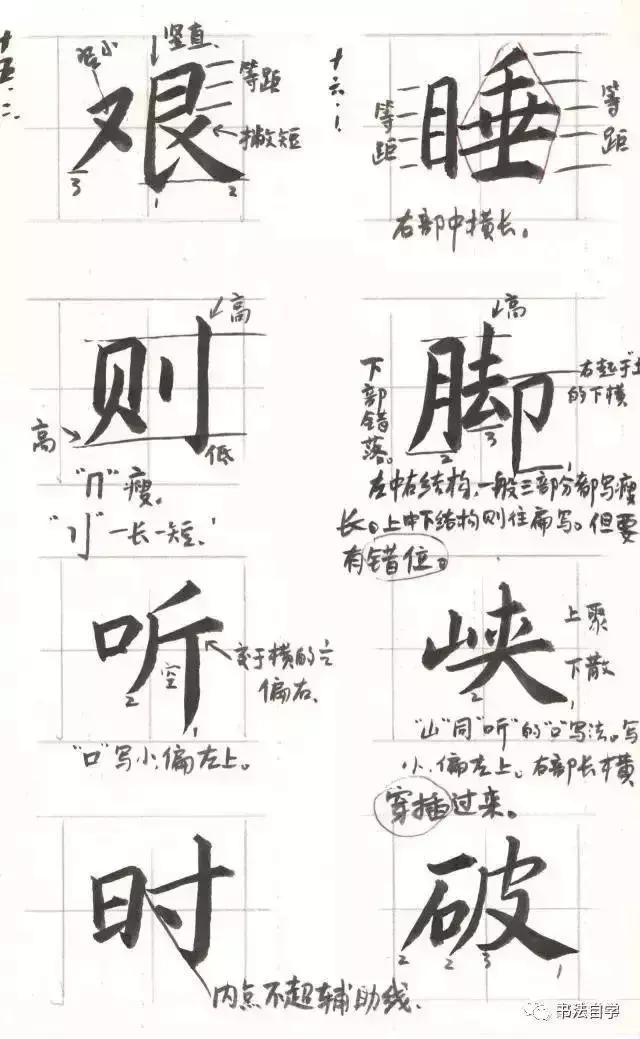 十五、二
竖直
艰
等距
撇短
3 1 2
十六、1
等距
睡
等距
右部中横长。
高
则
高
低
“冂”瘦。
“刂”一长一短.
高
脚
下部错落。
右起于“土”
的下横
2 3 1
左中右结构,一般三部分都写瘦
长。上中下结构则往扁写。但要
有错位。
听
空
交于横的
偏右.
2 1
“口”写小,偏左上。
峡
上聚
下散
2 1
“山”同“听”的“口”写法。写
小、偏左上。右部长横
穿插过来。
时
内点不超辅助线.
破
2 2 3 1
书法自学